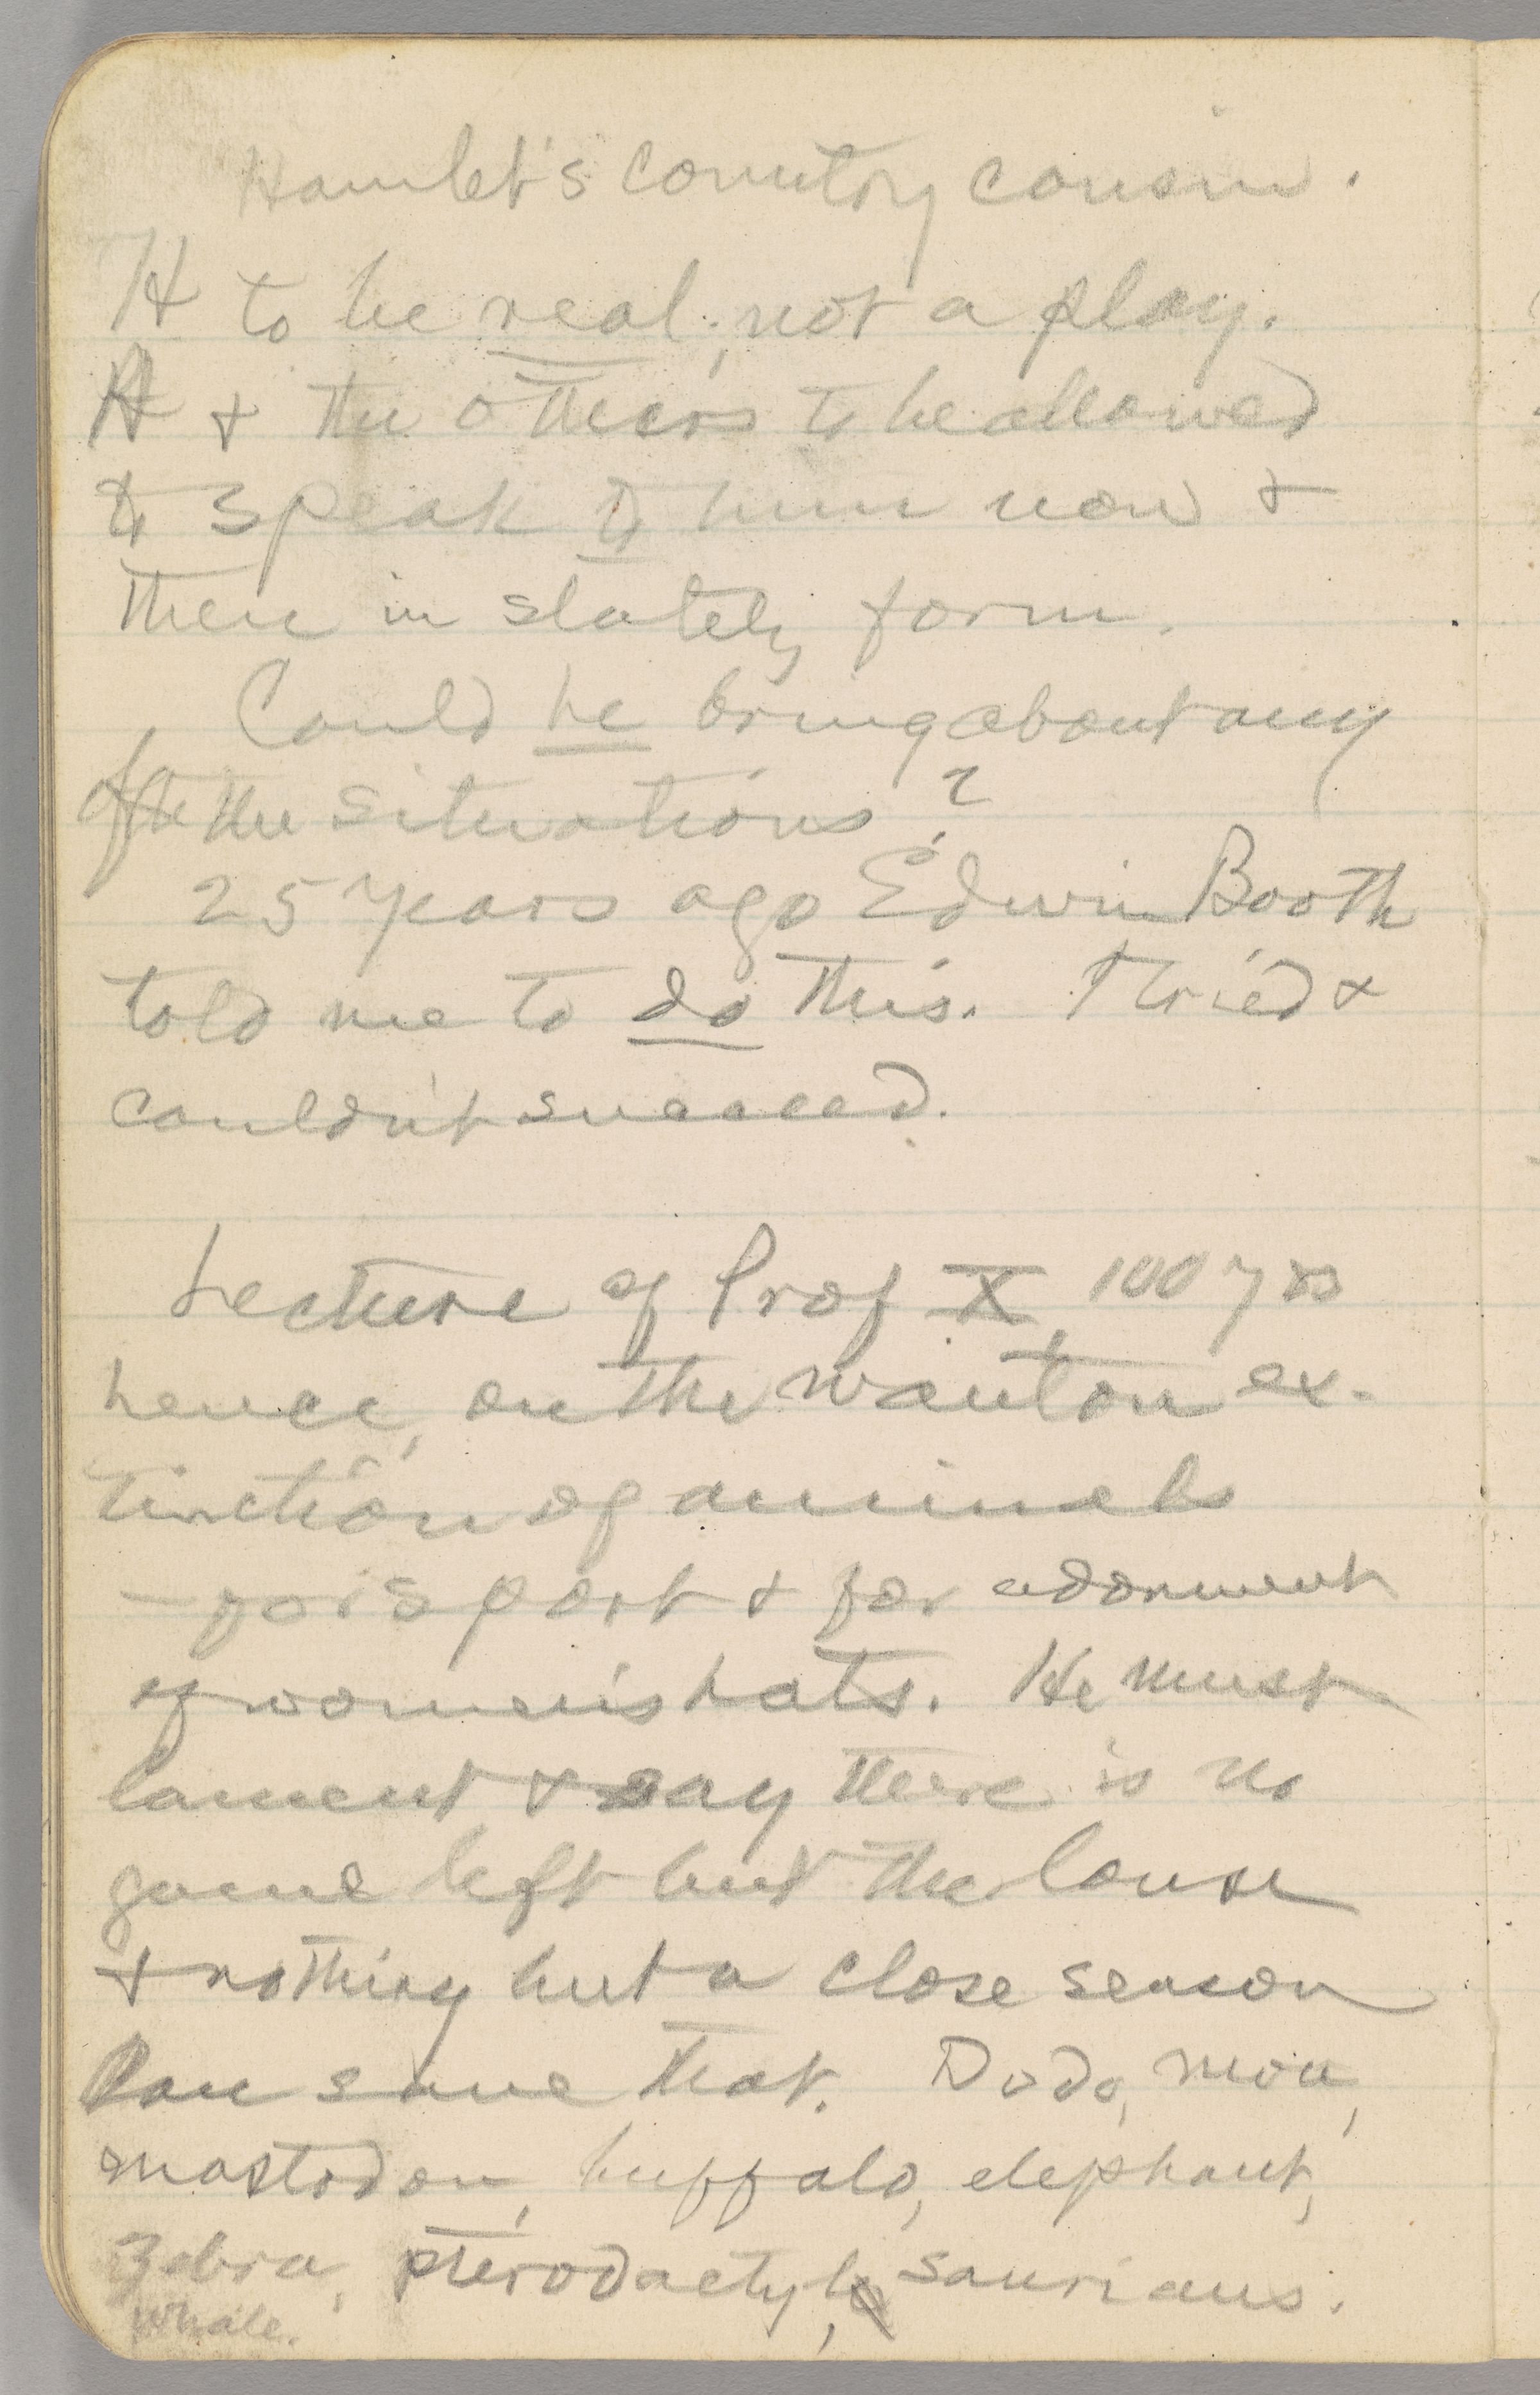 Hamlet's country cousin.
H to be real; not a play.
H & the others to be allowed
to speak to him now &
then in stately form.
Could he bring about any
of the situations?
25 years ago Edwin Booth
told me to do this. I tried &
couldn't succeed.
Lecture of Prof X, 100 yrs
hence, on the wanton ex-
tinction of animals
— for sport & for adornment
of women's hats. He must
lament & say there is no
game left but the louse
& nothing but a close season
can save that. Dodo, moa,
mastodon, buffalo, elephant,
Zebra, pterodactyl, saurians.
Whale.